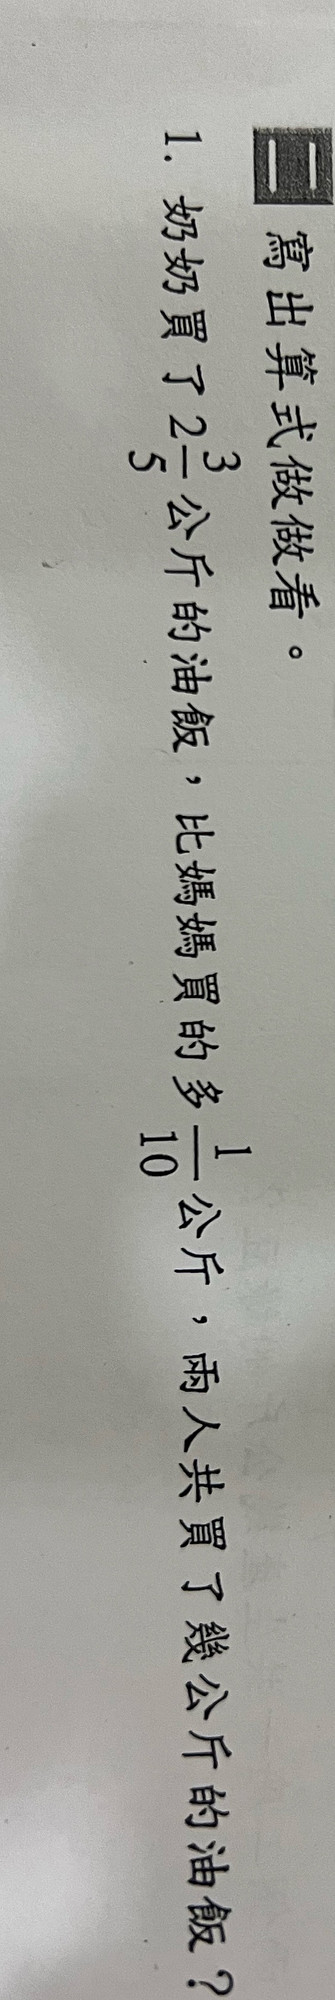 二 寫出算式做做看。
1. 奶奶買了2 3/5公斤的油飯，比媽媽買的多1/10公斤，兩人共買了幾公斤的油飯？